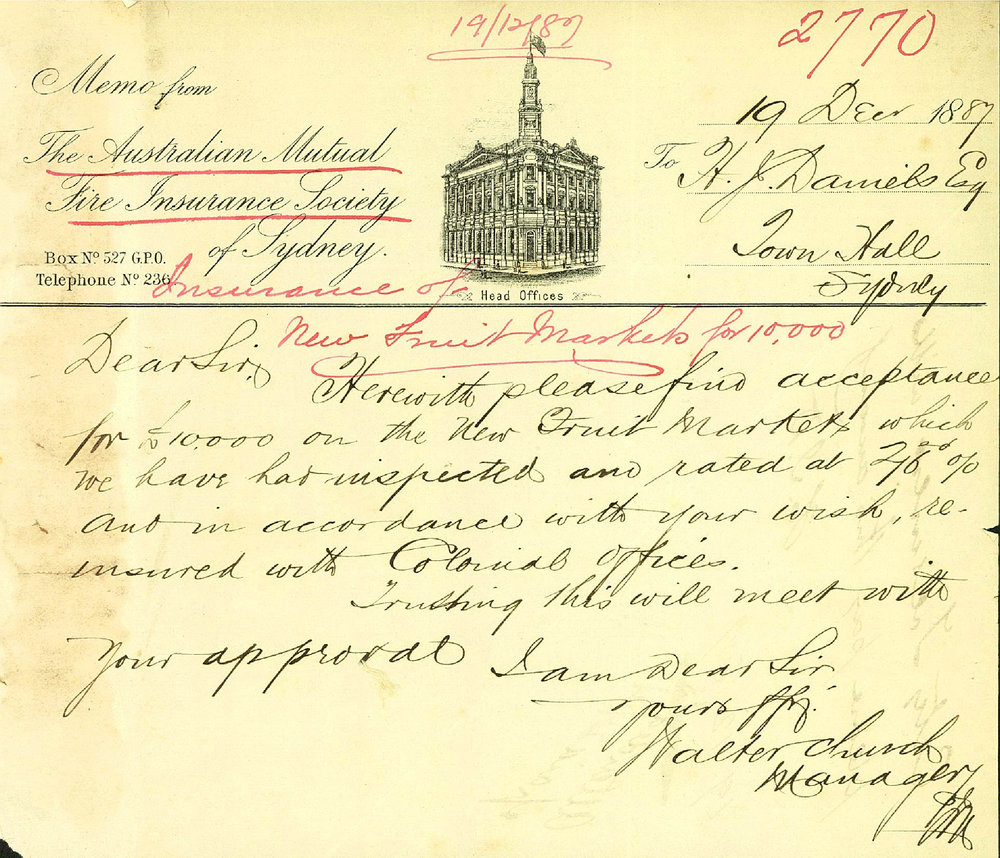 19/12/87
2770
Memo from
The Australian Mutual
Fire Insurance Society
of Sydney.
Box No 527 G.P.O.
Telephone No 236
Head Offices
19 Decr 1887
To H. J. Daniels Esq
Town Hall
Sydney
Insurance of
New Fruit Markets for 10,000
Dear Sir,
Herewith please find acceptance
for £10,000 on the New Fruit Markets which
we have had inspected and rated at 2/6d %
and in accordance with your wish, re-
insured with Colonial Offices.
Trusting this will meet with
your approval
I am Dear Sir
Yours
Walter Church
Manager